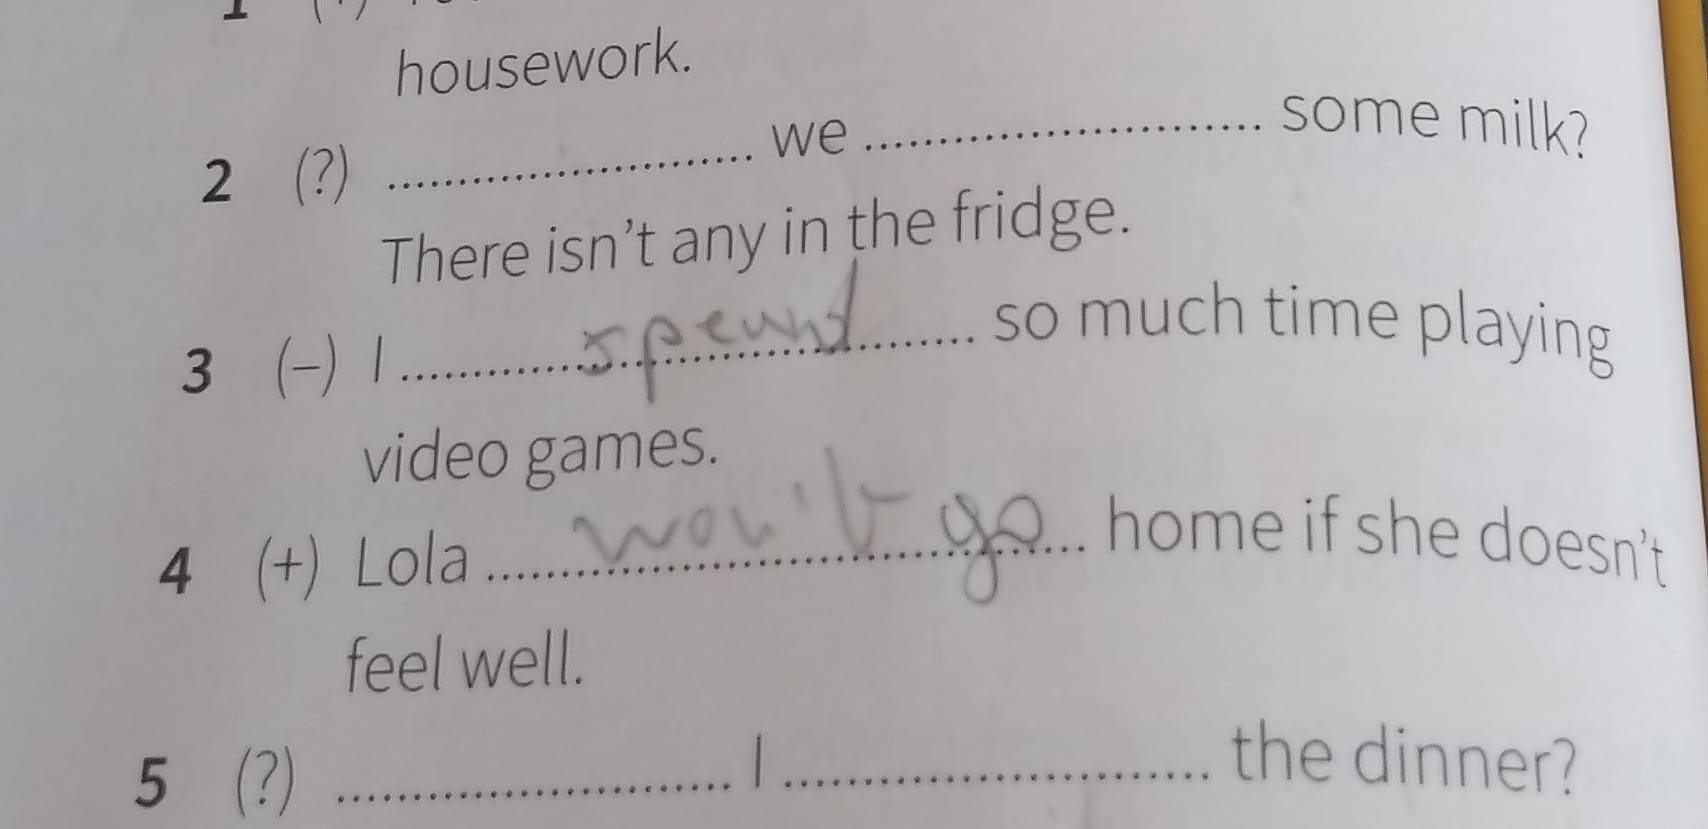 housework.
2 (?) ........................ we ........................ some milk?
There isn't any in the fridge.
3 (–) I ............ speund ............ so much time playing
video games.
4 (+) Lola ............ won't go ............ home if she doesn't
feel well.
5 (?) ........................ I ........................ the dinner?